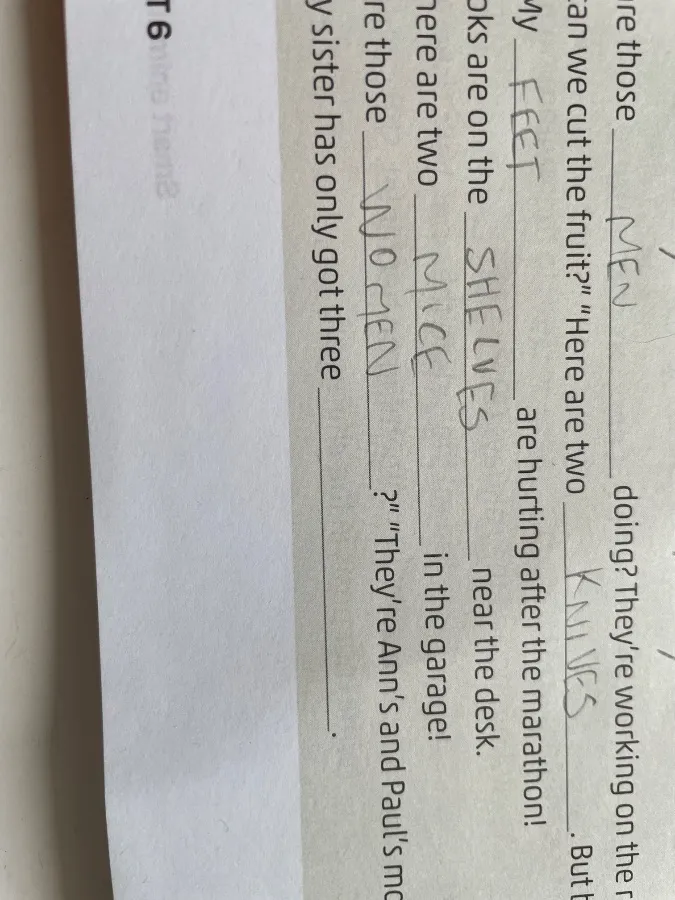 are those MEN doing? They're working on the r
can we cut the fruit?" "Here are two KNIVES. But b
My FEET are hurting after the marathon!
oks are on the SHELVES near the desk.
here are two MICE in the garage!
re those WOMEN?" "They're Ann's and Paul's mo
y sister has only got three.
T 6